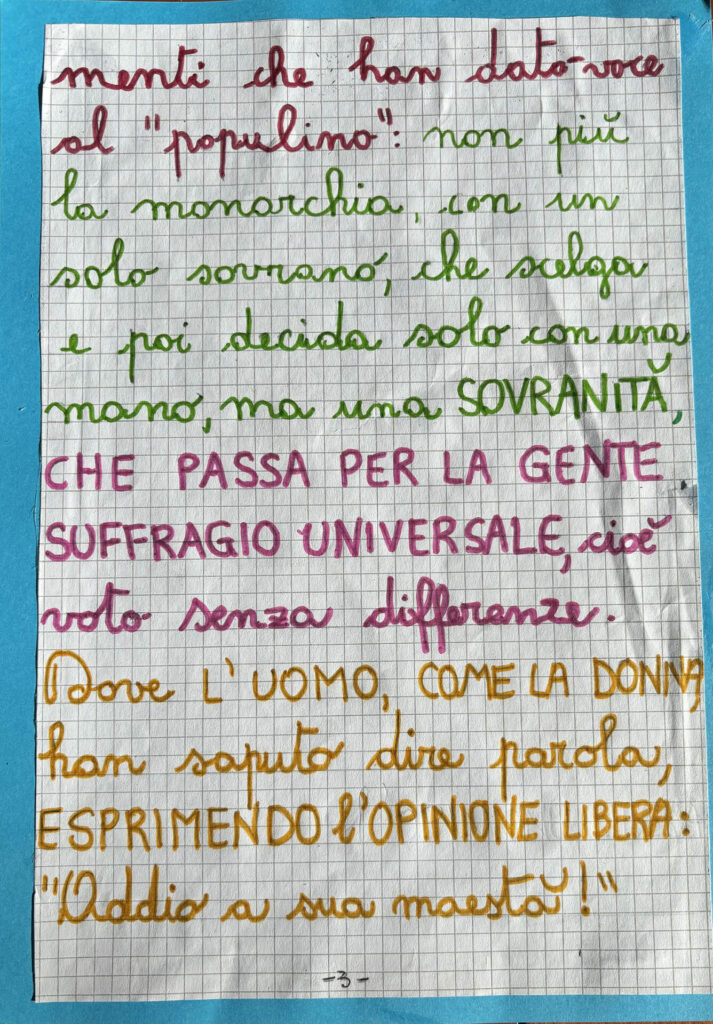 menti che han dato voce
al "populino": non più
la monarchia, con un
solo sovrano, che scelga
e poi decida solo con una
mano, ma una SOVRANITÀ,
CHE PASSA PER LA GENTE
SUFFRAGIO UNIVERSALE, cioè
voto senza differenze.
Dove L'UOMO, COME LA DONNA,
han saputo dire parola,
ESPRIMENDO l'OPINIONE LIBERA:
"Addio a sua maestà!"
-3-